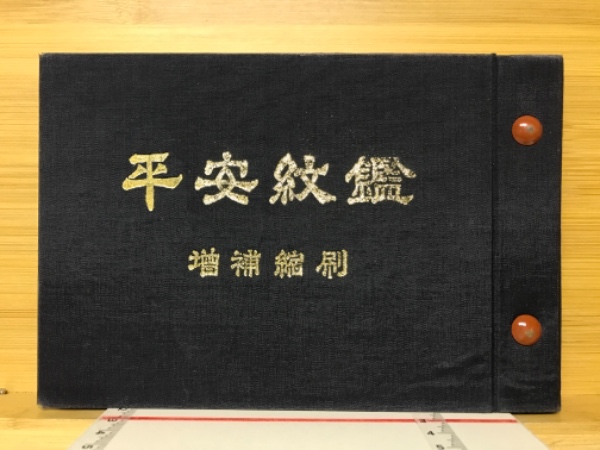 平安紋鑑
增補縮刷